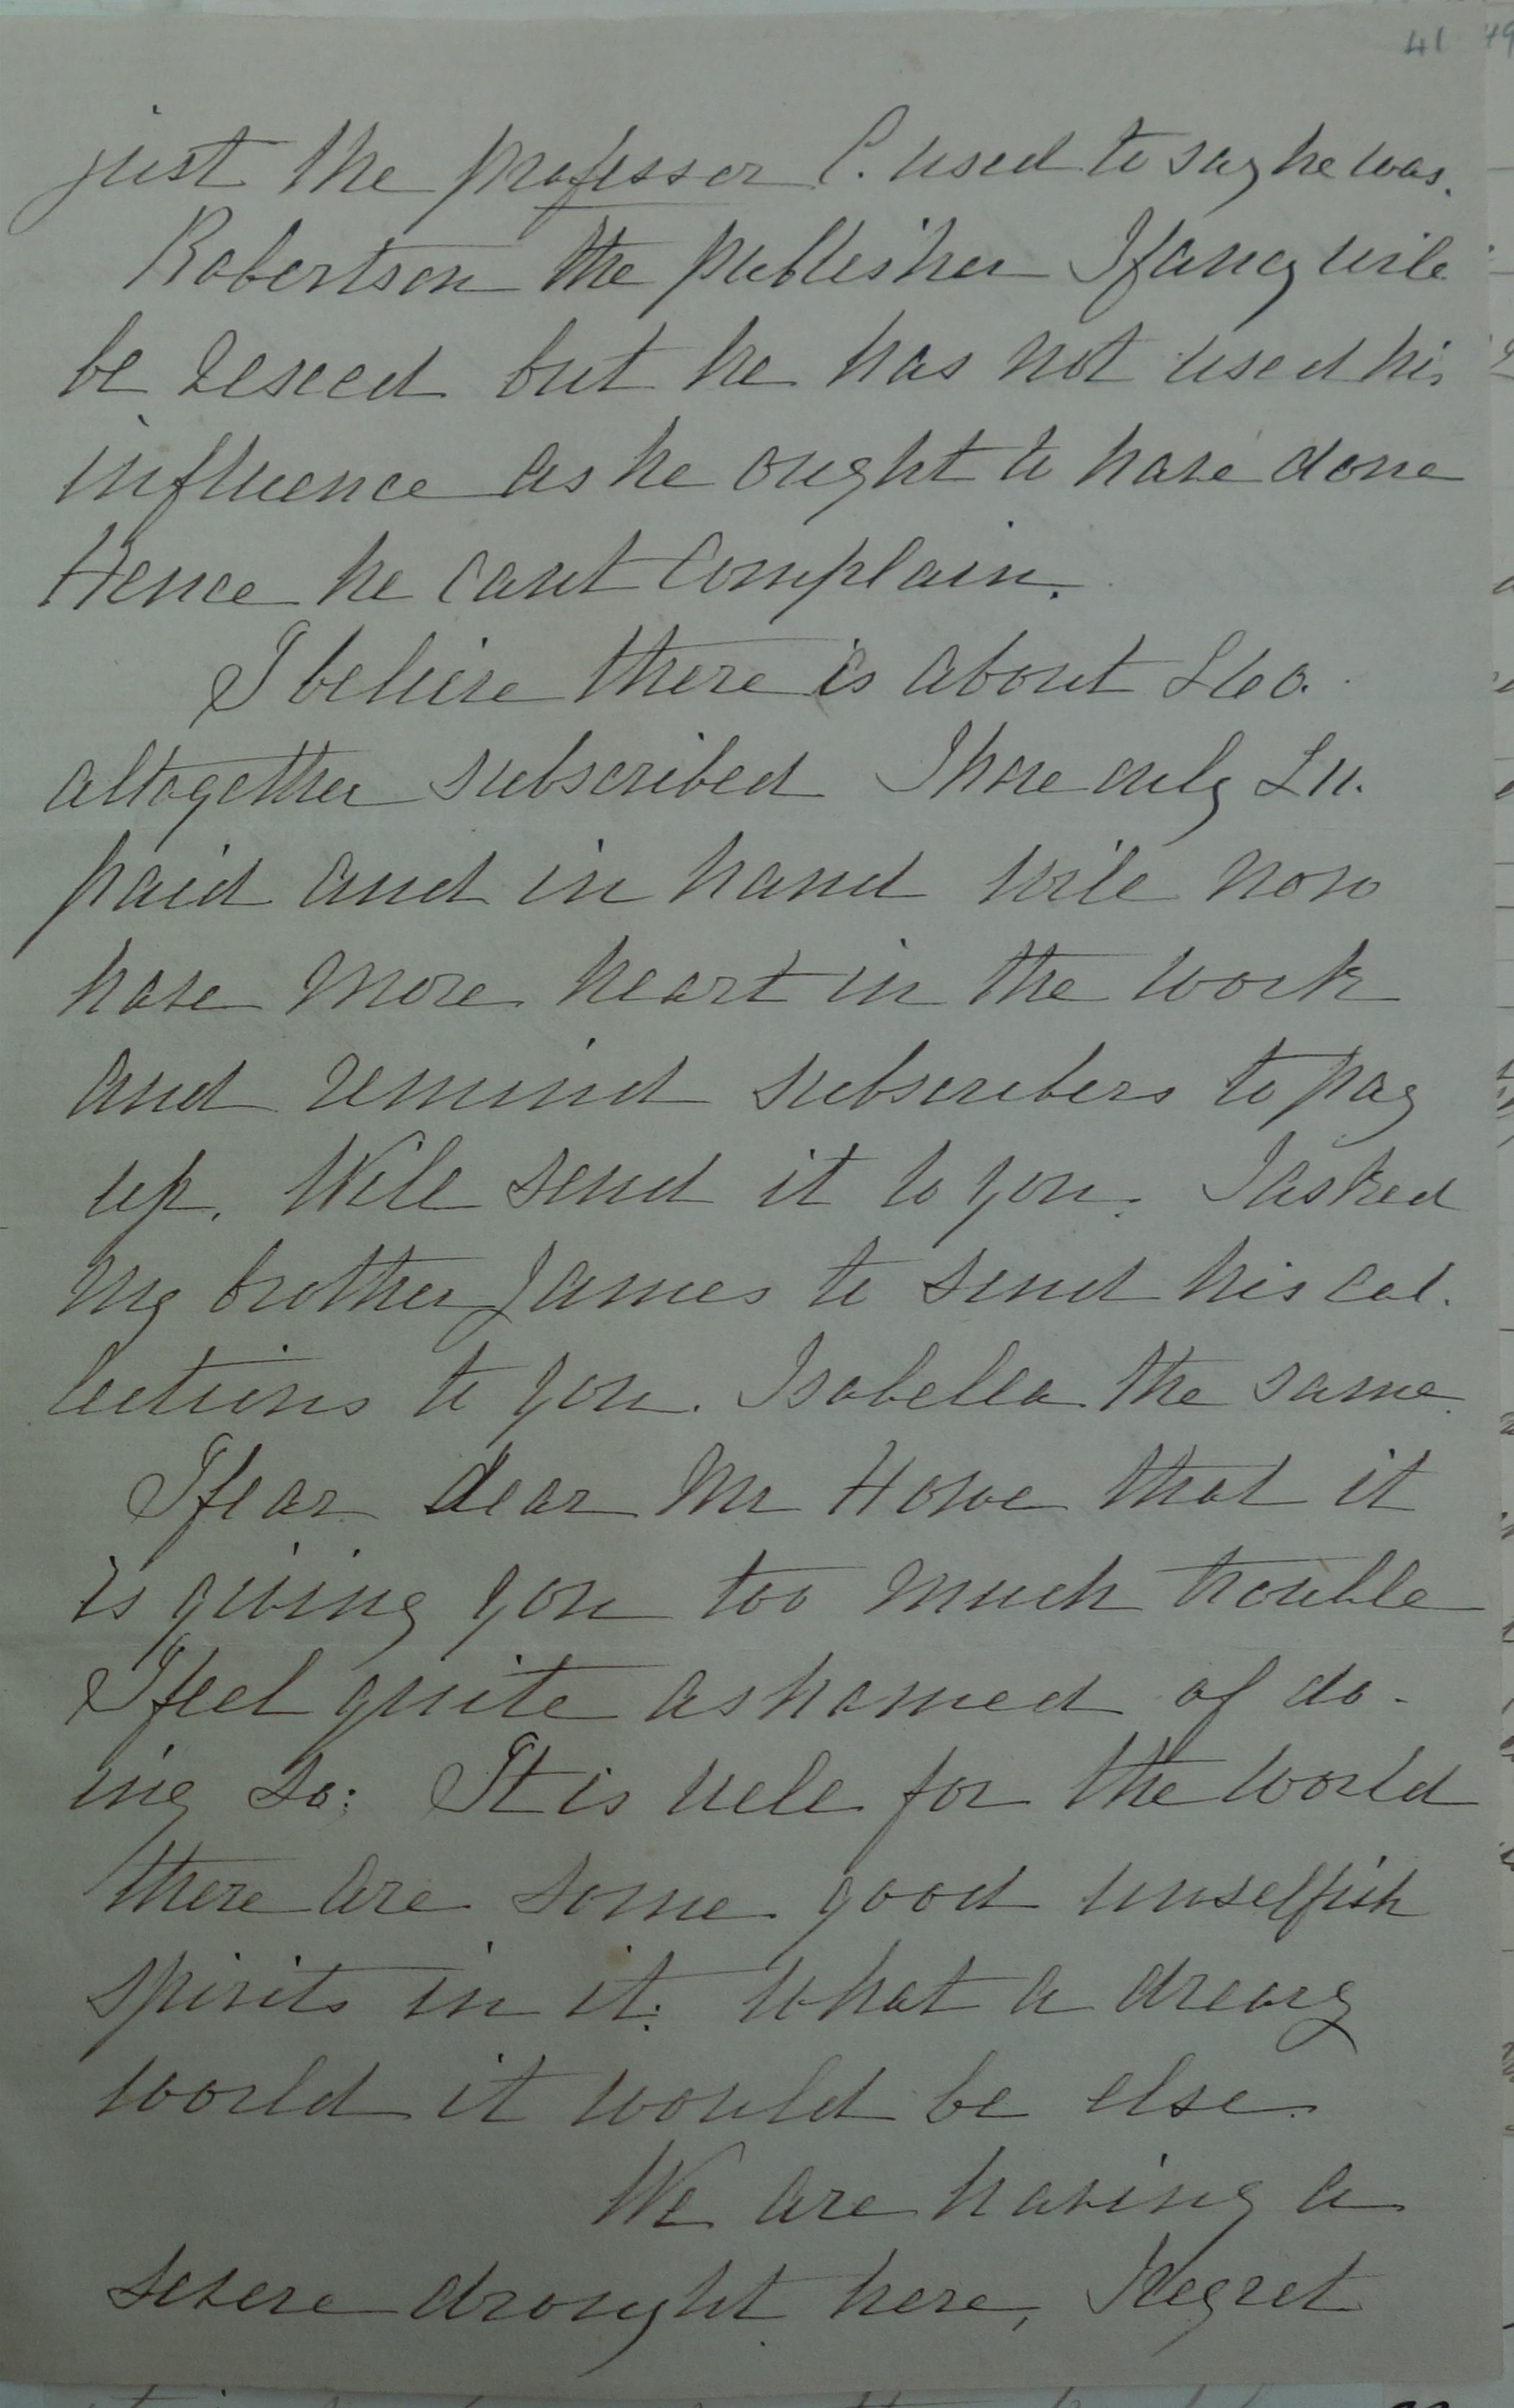 41 49
just the professor C. used to say he was.
Robertson the publisher I fancy will
be vexed but he has not used his
influence as he ought to have done
Hence he cant complain.
I believe there is about £60.
altogether subscribed I have only £11.
paid and in hand will now
have more heart in the work
and remind subscribers to pay
up. Will send it to you. I asked
my brother James to send his col.
lections to you. Isabella the same
I fear dear Mr Howe that it
is giving you too much trouble
I feel quite ashamed of do-
ing so: It is well for the world
there are some good unselfish
spirits in it. What a dreary
world it would be else.
We are having a
severe drought here, I regret